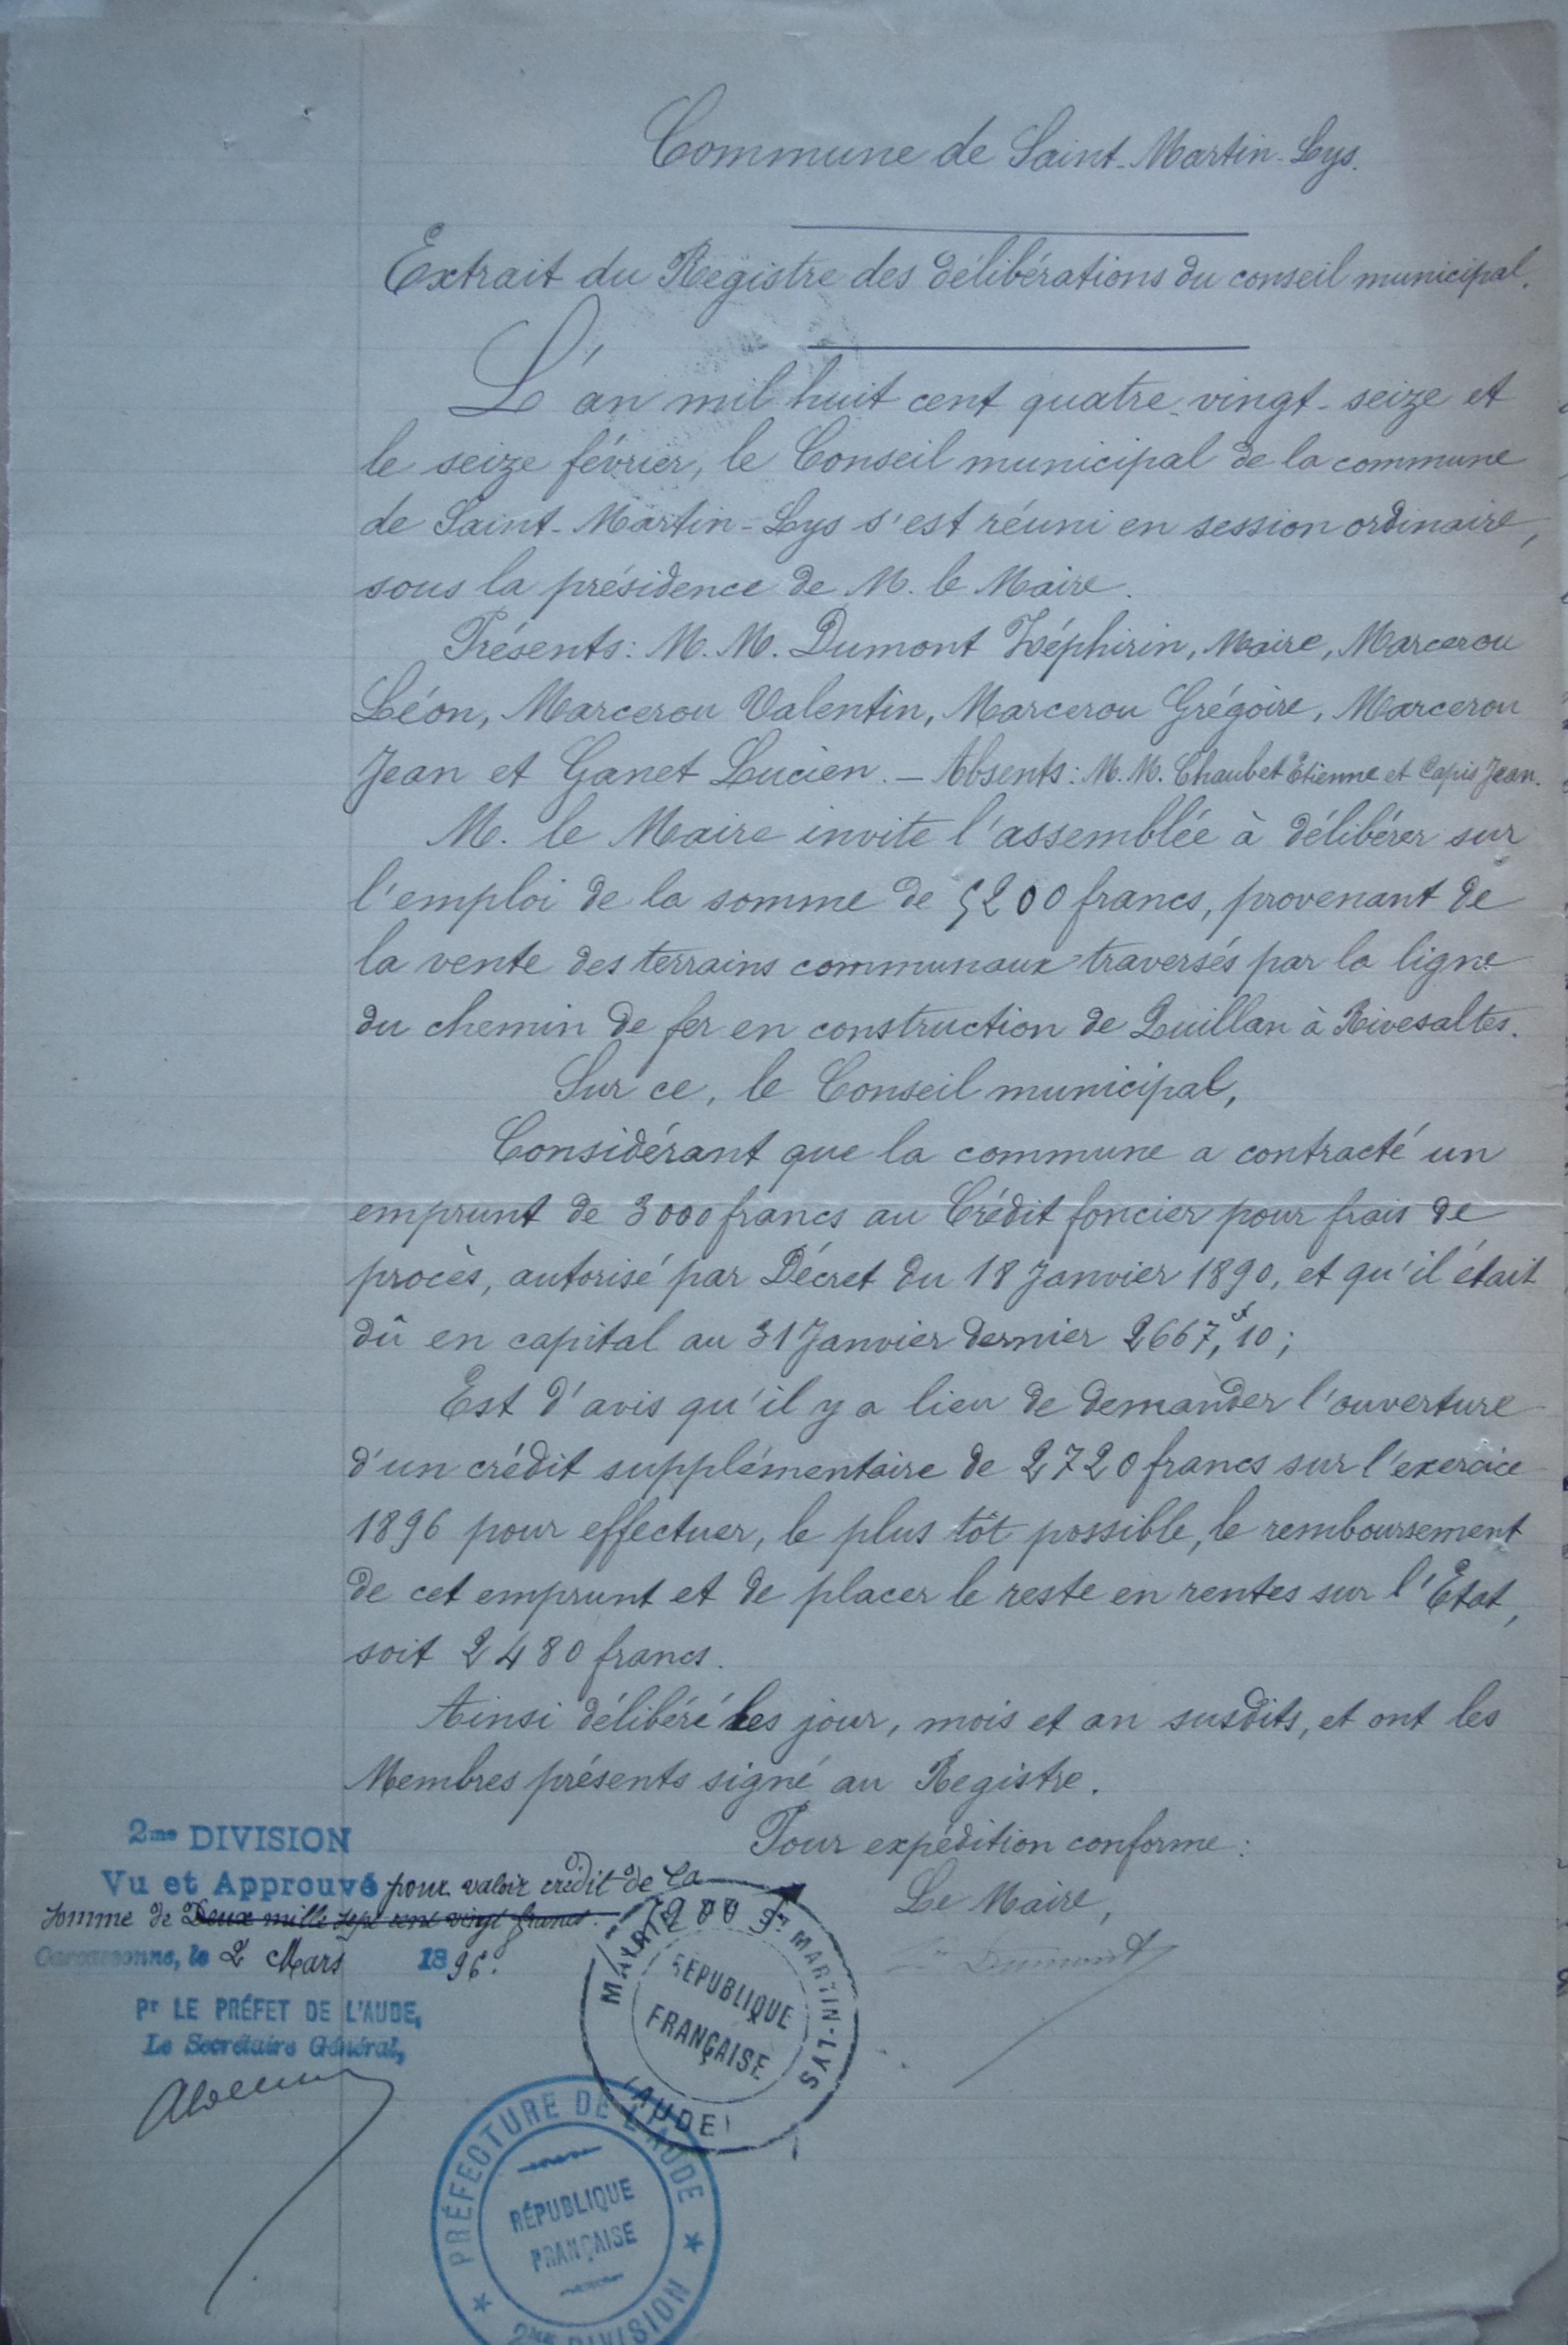 Commune de Saint-Martin-Lys.
Extrait du Registre des délibérations du conseil municipal.
L'an mil huit cent quatre-vingt-seize et
le seize février, le Conseil municipal de la commune
de Saint-Martin-Lys s'est réuni en session ordinaire,
sous la présidence de M. le Maire.
Présents: M. M. Dumont Zéphirin, Maire, Marcerou
Léon, Marcerou Valentin, Marcerou Grégoire, Marcerou
Jean et Ganet Lucien. — Absents: M. M. Chaubet Etienne et Capis Jean.
M. le Maire invite l'assemblée à délibérer sur
l'emploi de la somme de 5200 francs, provenant de
la vente des terrains communaux traversés par la ligne
du chemin de fer en construction de Quillan à Rivesaltes.
Sur ce, le Conseil municipal,
Considérant que la commune a contracté un
emprunt de 3000 francs au Crédit foncier pour frais de
procès, autorisé par Décret du 18 Janvier 1890, et qu'il était
dû en capital au 31 Janvier dernier 2667,f 10;
Est d'avis qu'il y a lieu de demander l'ouverture
d'un crédit supplémentaire de 2720 francs sur l'exercice
1896 pour effectuer, le plus tôt possible, le remboursement
de cet emprunt et de placer le reste en rentes sur l'Etat,
soit 2480 francs.
Ainsi délibéré les jour, mois et an susdits, et ont les
Membres présents signé au Registre.
Pour expédition conforme:
Le Maire,
Dumont
2me DIVISION
Vu et Approuvé pour valoir crédit de la
somme de Deux mille sept cent vingt francs.
Carcassonne, le 2 Mars 1896.
Pr LE PRÉFET DE L'AUDE,
Le Secrétaire Général,
MAIRIE DE ST MARTIN-LYS
RÉPUBLIQUE
FRANÇAISE
(AUDE)
PRÉFECTURE DE L'AUDE
RÉPUBLIQUE
FRANÇAISE
2ME DIVISION